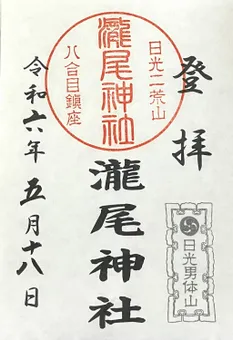 登拝
日光二荒山
瀧尾神社
八合目鎮座
瀧尾神社
日光男体山
令和六年五月十八日